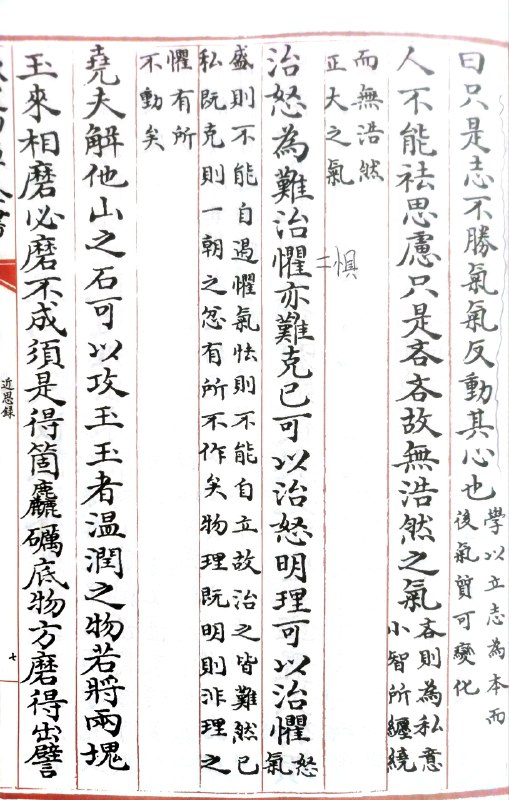 曰只是志不勝氣氣反動其心也
學以立志為本而
後氣質可變化
人不能祛思慮只是吝吝故無浩然之氣
吝則為私意
小智所纏繞
而無浩然
正大之氣
惧
治怒為難治懼亦難克己可以治怒明理可以治懼
怒
氣
盛則不能自遏懼氣怯則不能自立故治之皆難然已
私既克則一朝之忿有所不作矣物理既明則非理之
懼有所
不動矣
堯夫解他山之石可以攻玉玉者温潤之物若將兩塊
玉來相磨必磨不成須是得箇麤礪底物方磨得出譬
近思錄
七